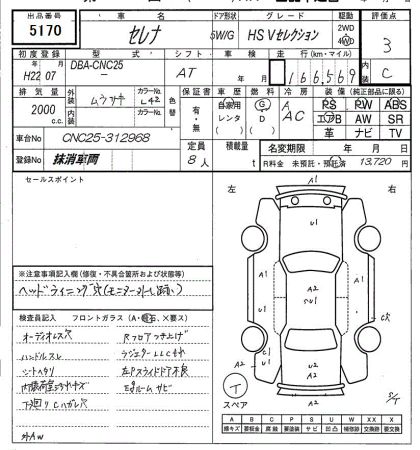 出品番号 車名 ドア形状 グレード 駆動 評価点
5170 セレナ 5W/G HS Vセレクション 2WD 4WD 3
初度登録 型式 シフト 車検 走行(km・マイル) 内装
年 月 H22 07 DBA-CNC25 - AT 年 月 166,569 C
排気量 外装 カラーNo. 色替 保証書 車歴 燃料 冷房 装備(純正部品に限る)
2000 c.c. L42 有・無 自家用 レンタ G D A AC PS PW ABS
内装 カラーNo. エアB AW SR
革 ナビ TV
車台No CNC25-312968 定員 積載量 名変期限 年 月 日
登録No 抹消車両 8人 t R料金 未預託・預託済 13,720 円
セールスポイント 左 右
A1
U1
A1
A2
A1
※注意事項記入欄(修復・不具合箇所および状態等)
検査員記入 フロントガラス(A・飛石・X要ス)
オーディオレス穴
ハンドルスレ
シートヘタリ
ラジエターLLCもれ
左Pスライドドア不良
Egルームサビ
外AW
A2
U2
A2
A2
スペア T
A B C P S U W X XX
線キズ 要板金 腐蝕 要塗装 サビ 凹凸 補修跡 交換跡 要交換